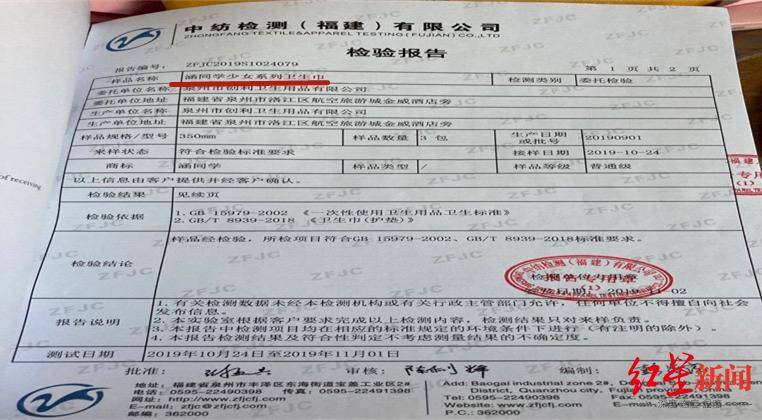 中纺检测（福建）有限公司
ZHONGFANG TEXTILE&APPAREL TESTING(FUJIAN)CO.,LTD
检验报告
报告编号: ZFJC2019S1024079 第 1 页 共 2 页
样品名称 涵同学少女系列卫生巾 检测类别 委托检验
委托单位名称 泉州市创利卫生用品有限公司
委托单位地址 福建省泉州市洛江区航空旅游城金威酒店旁
生产单位名称 泉州市创利卫生用品有限公司
生产单位地址 福建省泉州市洛江区航空旅游城金威酒店旁
样品规格/型号 350mm 样品数量 3 包 生产日期或批号 20190901
来样状态 符合检验标准要求 接样日期 2019-10-24
商标 涵同学 样品类型 / 样品等级 普通级
以上信息由客户提供并经客户确认。
of receiving
检验结果 见续页
检验依据 1.GB 15979-2002 《一次性使用卫生用品卫生标准》
2.GB/T 8939-2018 《卫生巾(护垫)》
检验结论 样品经检验，所检项目符合GB 15979-2002、GB/T 8939-2018标准要求。
报告专用章
报告说明 1.有关检测数据未经本检测机构或有关行政主管部门允许，任何单位不得擅自向社会
发布信息。
2.本实验室根据客户要求完成以上检测内容，检测结果只对来样负责。
3.本报告中检测项目均在相应的标准规定的环境条件下进行（有注明的除外）。
4.本报告检测结果及符合性判定不考虑测量结果的不确定度。
测试日期 2019年10月24日至2019年11月01日
批准: 审核: 编制:
地址: 福建省泉州市丰泽区东海街道宝盖工业区2#
电话: 0595-22490398 传真: 0595-22491398
网址: http://www.zfjcfj.com
E-mail: zfjc@zfjcfj.com
邮编: 362000
Add: Baogai industrial zone 2#,
District, Quanzhou city, Fujian province
Tel: 0595-22490398
E-mail:
P.C: 362000
红星新闻